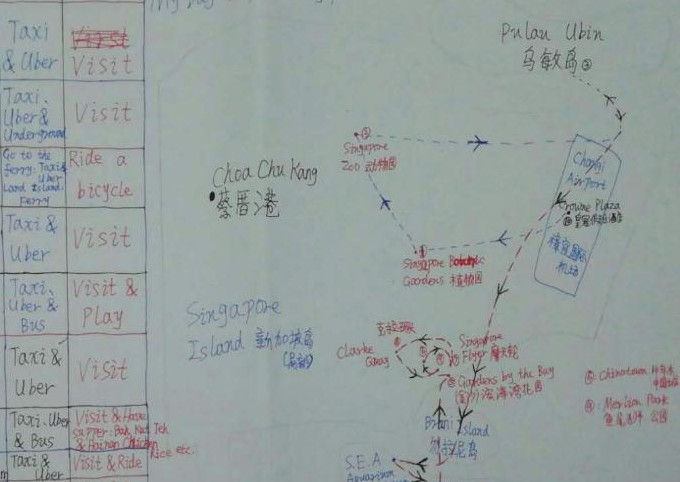 Taxi
& Uber
Visit
Taxi、
Uber &
Underground
Visit
Go to the
ferry: Taxi &
Uber
Land Island:
Ferry
Ride a
bicycle
Taxi &
Uber
Visit
Taxi、
Uber &
Bus
Visit &
Play
Taxi &
Uber
Visit
Taxi、Uber
& Bus
Visit & Have
supper: Bak Kut Teh
& Hainan Chicken
Rice etc.
Taxi &
Uber
Visit & Ride
Pulau Ubin
乌敏岛③
Singapore
Zoo 动物园
Changi
Airport
Choa Chu Kang
蔡厝港
Crowne Plaza
皇冠假日酒店
樟宜国际
机场
Singapore Botanic
Gardens 植物园
Singapore
Island 新加坡岛
(局部)
克拉码头
Clarke
Quay
Singapore
Flyer 摩天轮
Gardens by the Bay
滨海湾花园
Brani Island
布拉尼岛
S.E.A
Aquarium
Chinatown 牛车水
Merlion Park
鱼尾狮 公园